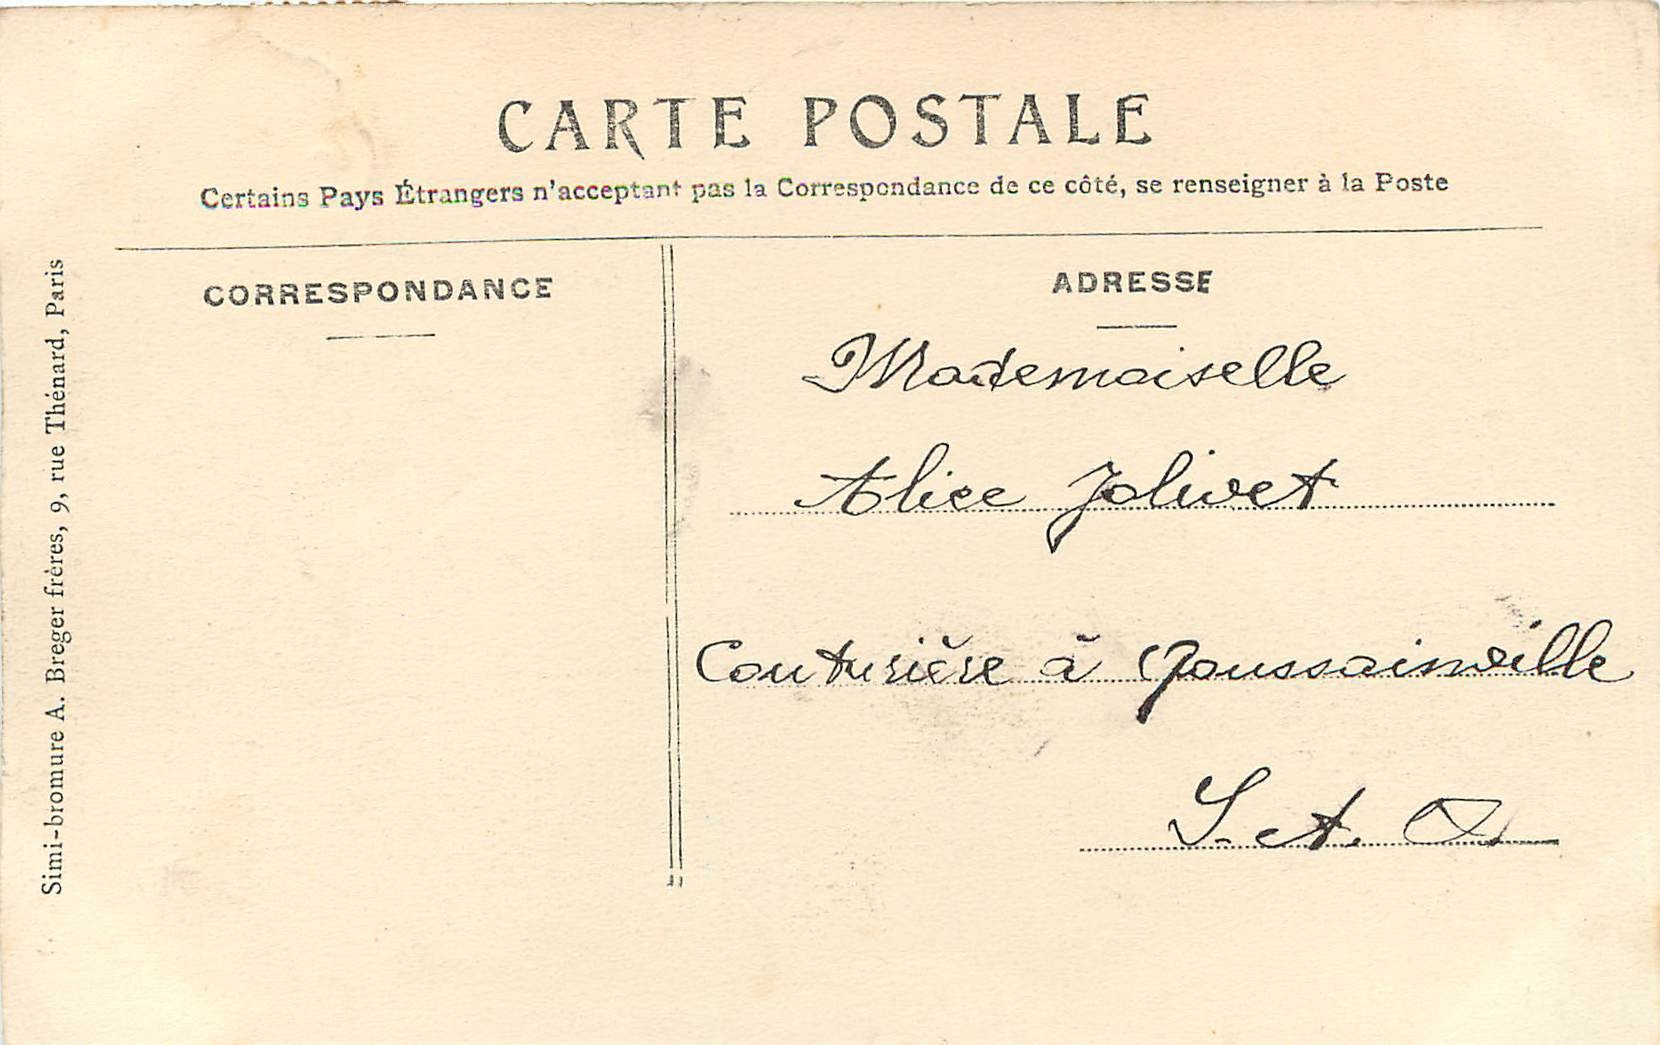 CARTE POSTALE
Certains Pays Étrangers n'acceptant pas la Correspondance de ce côté, se renseigner à la Poste
CORRESPONDANCE
ADRESSE
Mademoiselle
Alice Jolivet
Couturière à Goussainville
S. et. O.
Simi-bromure A. Breger frères, 9, rue Thénard, Paris